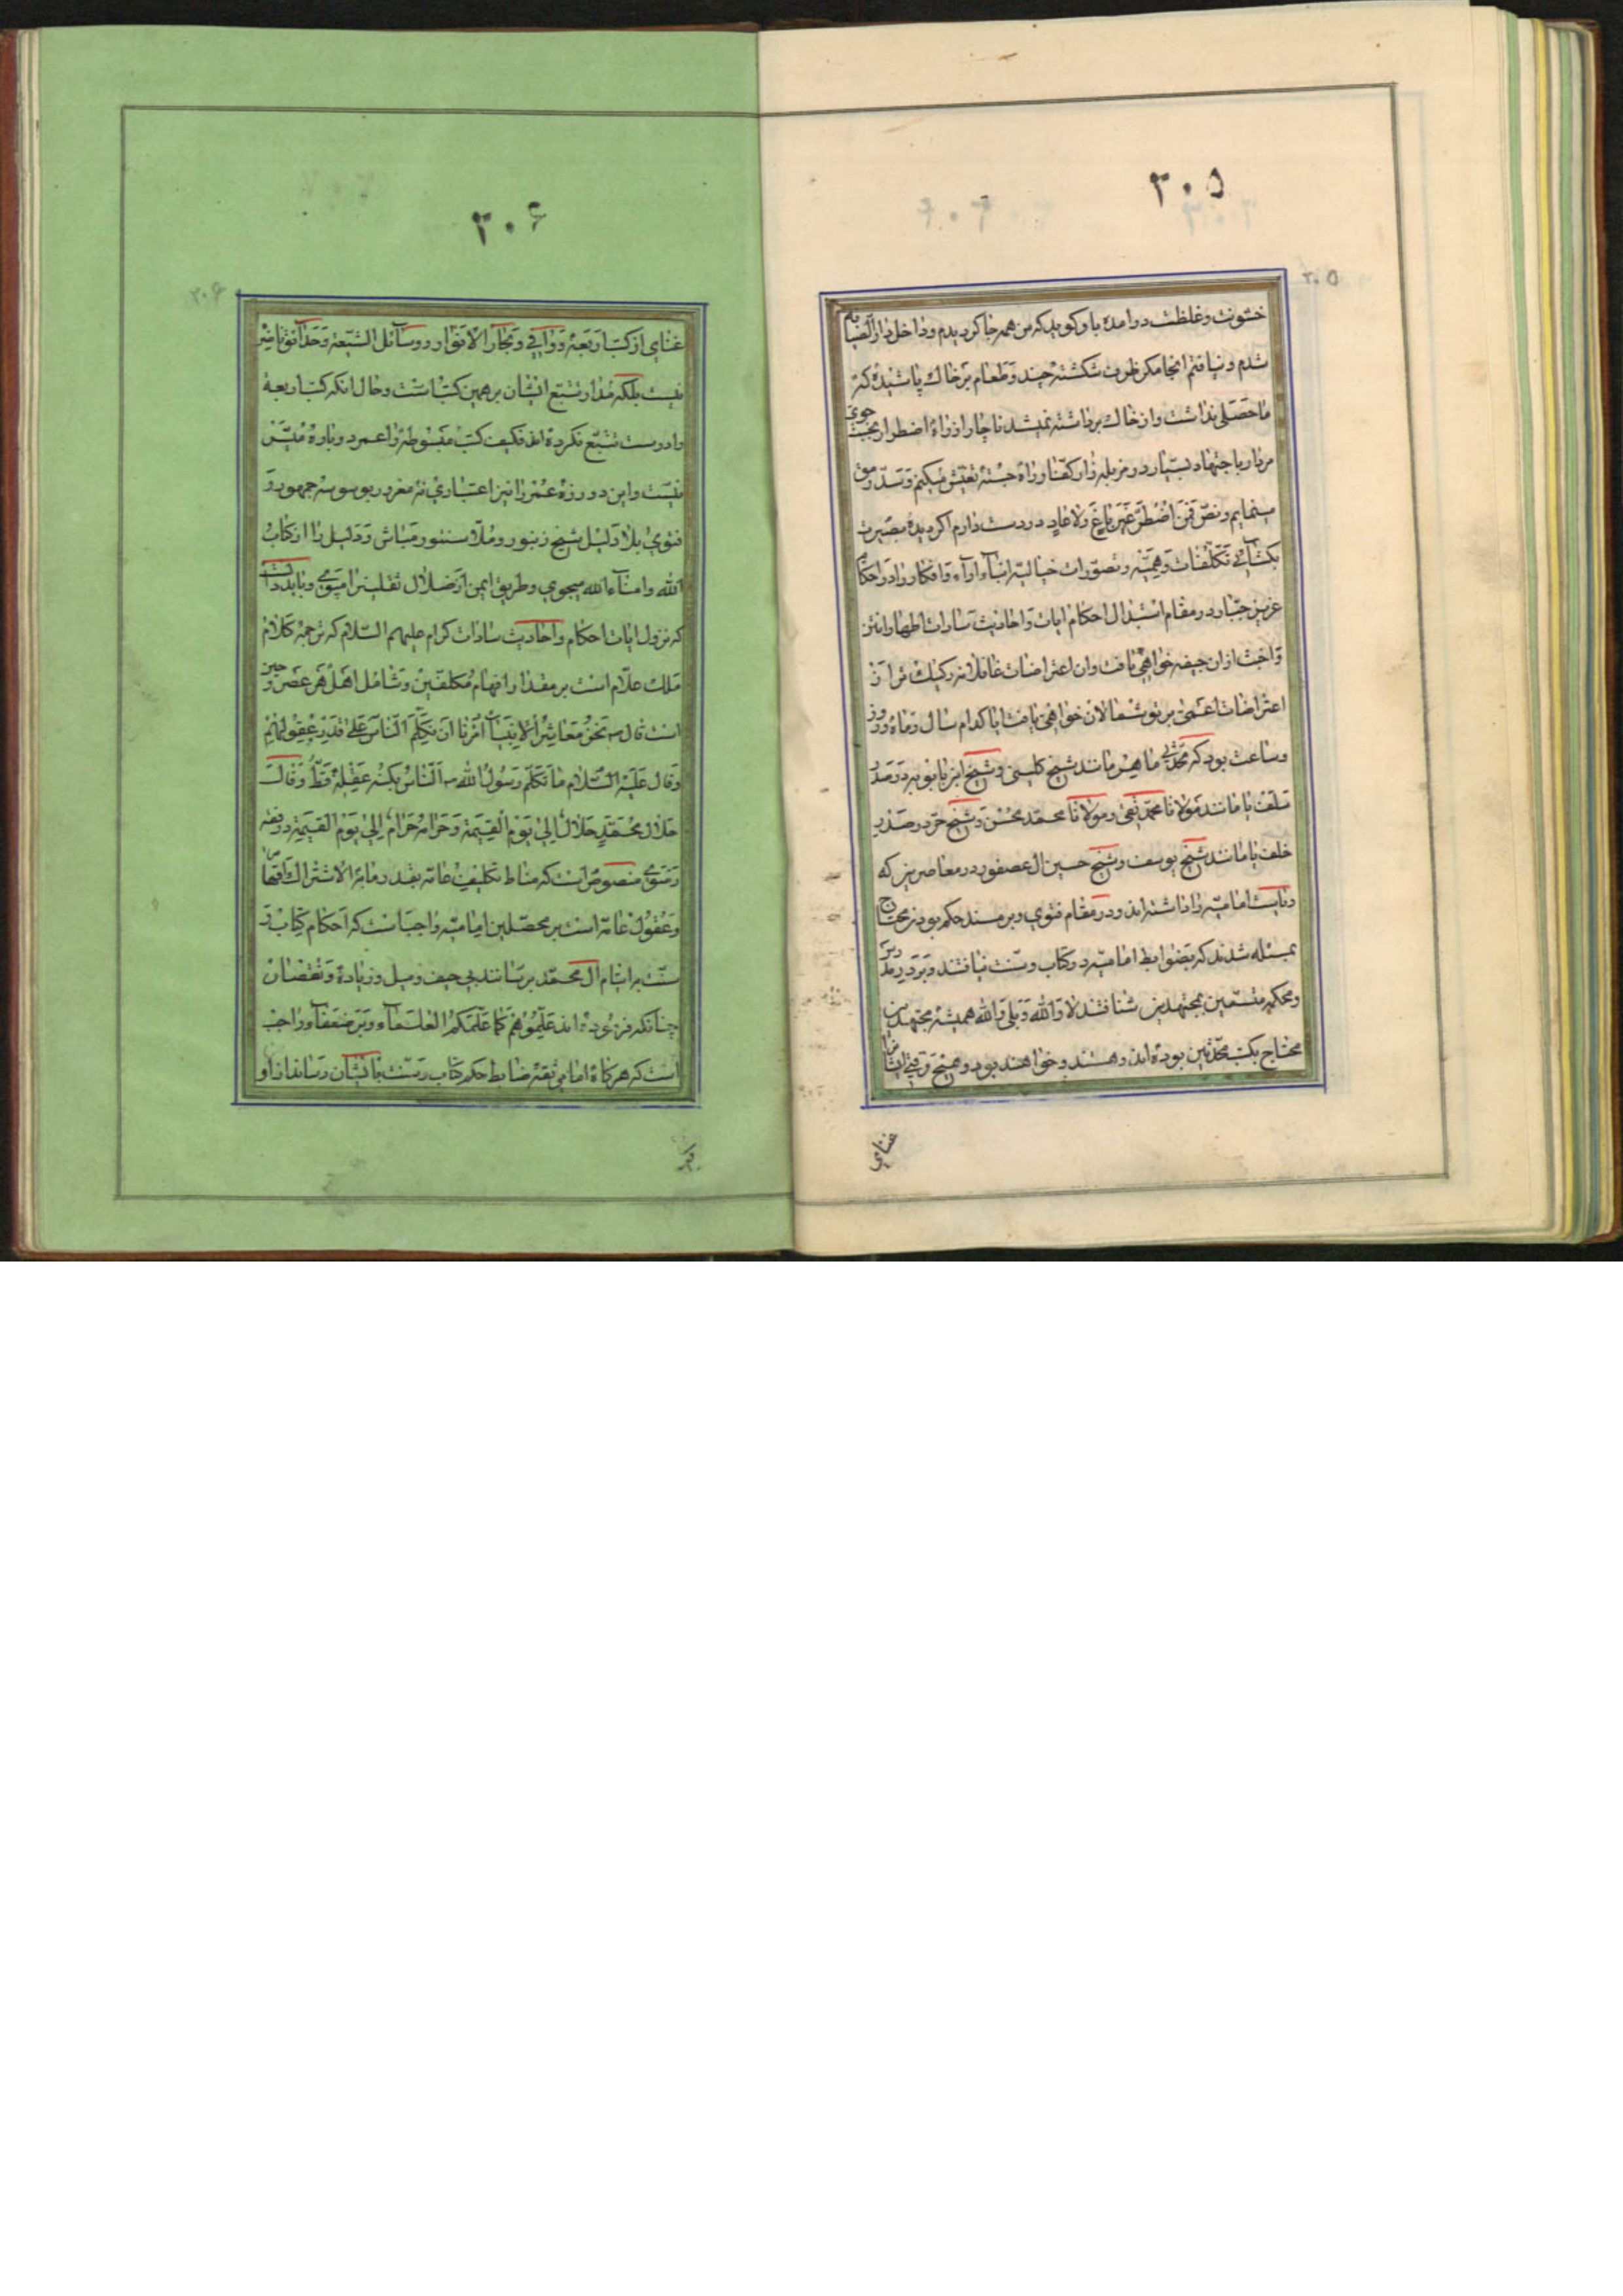 ۳۰۵
۳۰۵
خشونت و غلظت درامده باو کوید که من همه جا کردیدم و داخل دار الضیافه
شدم و نیافتم انجا مکر ظروف شکسته چند و طعام بر خاک پاشیده که
ماحصلی نداشت و از خاک برداشته نمیشد ناچار از راه اضطرار بجست جوی
مردار باجتهاد بسیار در مزبله و از کفتا و راه جسته تفتیش میکنم و سد رمق
مینمایم و نص فمن اضطر غیر باغ ولا عاد در دست دارم اکر دیده بصیرت
بکشائی تکلفات وهمیه و تصورات خیالیه ابناء اراء و افکار را در احکام
عزیز جبار در مقام استبدال احکام ایات و احادیث سادات اطهار انتن
و اخبث ازان جیفه خواهی یافت وان اعتراضات غافلانه رکیک تر از
اعتراضات اعمی بر تو شعالان خواهی یافت ایا کدام سال و ماه و روز
و ساعت بود که محدثی ماهر مانند شیخ کلینی و شیخ ابن بابویه در صدر
سلف یا مانند مولانا محمد تقی و مولانا محمد محسن و شیخ حر در صدر
خلف یا مانند شیخ یوسف و شیخ حسین ال عصفور در معاصرین که
ریاست امامیه را داشته اند و در مقام فتوی و بر مسند حکم بودند محتاج
بمسئله شدند که بضوابط امامیه در کتاب و سنت نیافتند و بر در مدرس
و محکمه متسمین بمجتهدین شتافتند لا والله و بلی والله همیشه مجتهدین
محتاج بکتب محدثین بوده اند و هستند و خواهند بود و هیچ وقتی ایشانرا
غنای
۳۰۶
۳۰۶
غنای از کتب اربعه و وافی و بحار الانوار و وسائل الشیعه و حدائق ناضره
نیست بلکه مدار تتبع ایشان بر همین کتب است و حال انکه کتب اربعه
را درست تتبع نکرده اند فکیف کتب مبسوطه را عمر دوباره میسر
نیست و این دو روزه عمر را نیز اعتباری نه مغرور بوسوسه جمهور و
فتوی بلا دلیل شیخ زنبور و ملا سنور مباش و دلیل را از کتاب
الله و امناء الله میجوی و طریق ایمن از ضلال ثقلین را میپوی و باید دانست
که نزول ایات احکام و احادیث سادات کرام علیهم السلام که ترجمه کلام
ملک علام است بر مقدار افهام مکلفین و شامل اهل هر عصر و حین
است قال نحن معاشر الانبیاء امرنا ان نکلم الناس علی قدر عقولهم
و قال علیه السلام ما تکلم رسول الله الناس بکنه عقله قط و قال
حلال محمد حلال الی یوم القیمة و حرامه حرام الی یوم القیمة
منصوص است که مناط تکلیف عامه بقدر ما به الاشتراک افهام
و عقول عامه است بر محصلین امامیه واجب است که احکام کتاب و
سنت را بایتام ال محمد برسانند بی حیف و میل و زیاده و نقصان
چنانکه فرموده اند علموهم کما علمکم العلماء و بر ضعفا واجب
است که هرکاه امامی ثقه ضابط حکم کتاب و سنت بایشان رساند از او